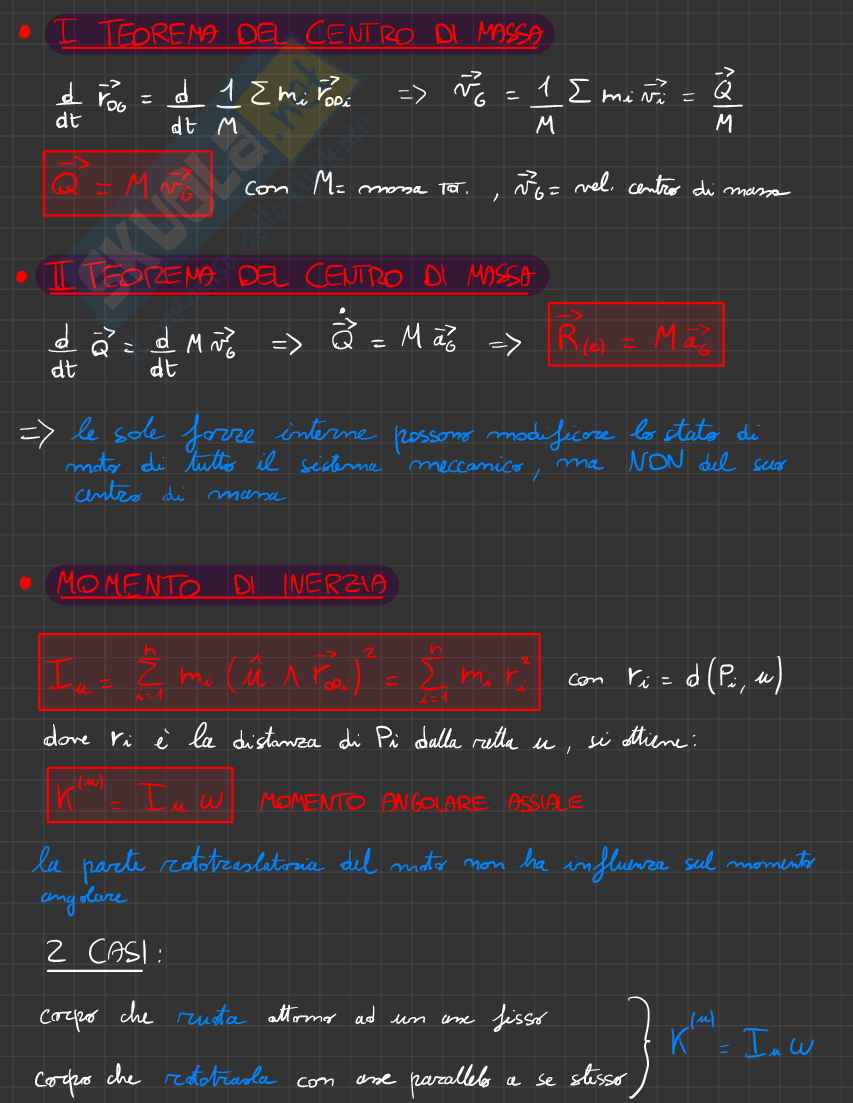 • I TEOREMA DEL CENTRO DI MASSA
d/dt r⃗_OG = d/dt 1/M Σ m_i r⃗_OP_i => v⃗_G = 1/M Σ m_i v⃗_i = Q⃗/M
Q⃗ = M v⃗_G con M= massa TOT. , v⃗_G = vel. centro di massa
• II TEOREMA DEL CENTRO DI MASSA
d/dt Q⃗ = d/dt M v⃗_G => Q⃗̇ = M a⃗_G => R⃗_(e) = M a⃗_G
=> le sole forze interne possono modificare lo stato di
moto di tutto il sistema meccanico, ma NON del suo
centro di massa
• MOMENTO DI INERZIA
I_u = Σ_{i=1}^{n} m_i (û ∧ r⃗_OP_i)² = Σ_{i=1}^{n} m_i r_i² con r_i = d(P_i, u)
dove r_i è la distanza di P_i dalla retta u, si ottiene:
K^(u) = I_u ω MOMENTO ANGOLARE ASSIALE
la parte rototraslatoria del moto non ha influenza sul momento
angolare
2 CASI:
corpo che ruota attorno ad un asse fisso
corpo che rototrasla con asse parallelo a se stesso } K^(u) = I_u ω
SKUOLA.net